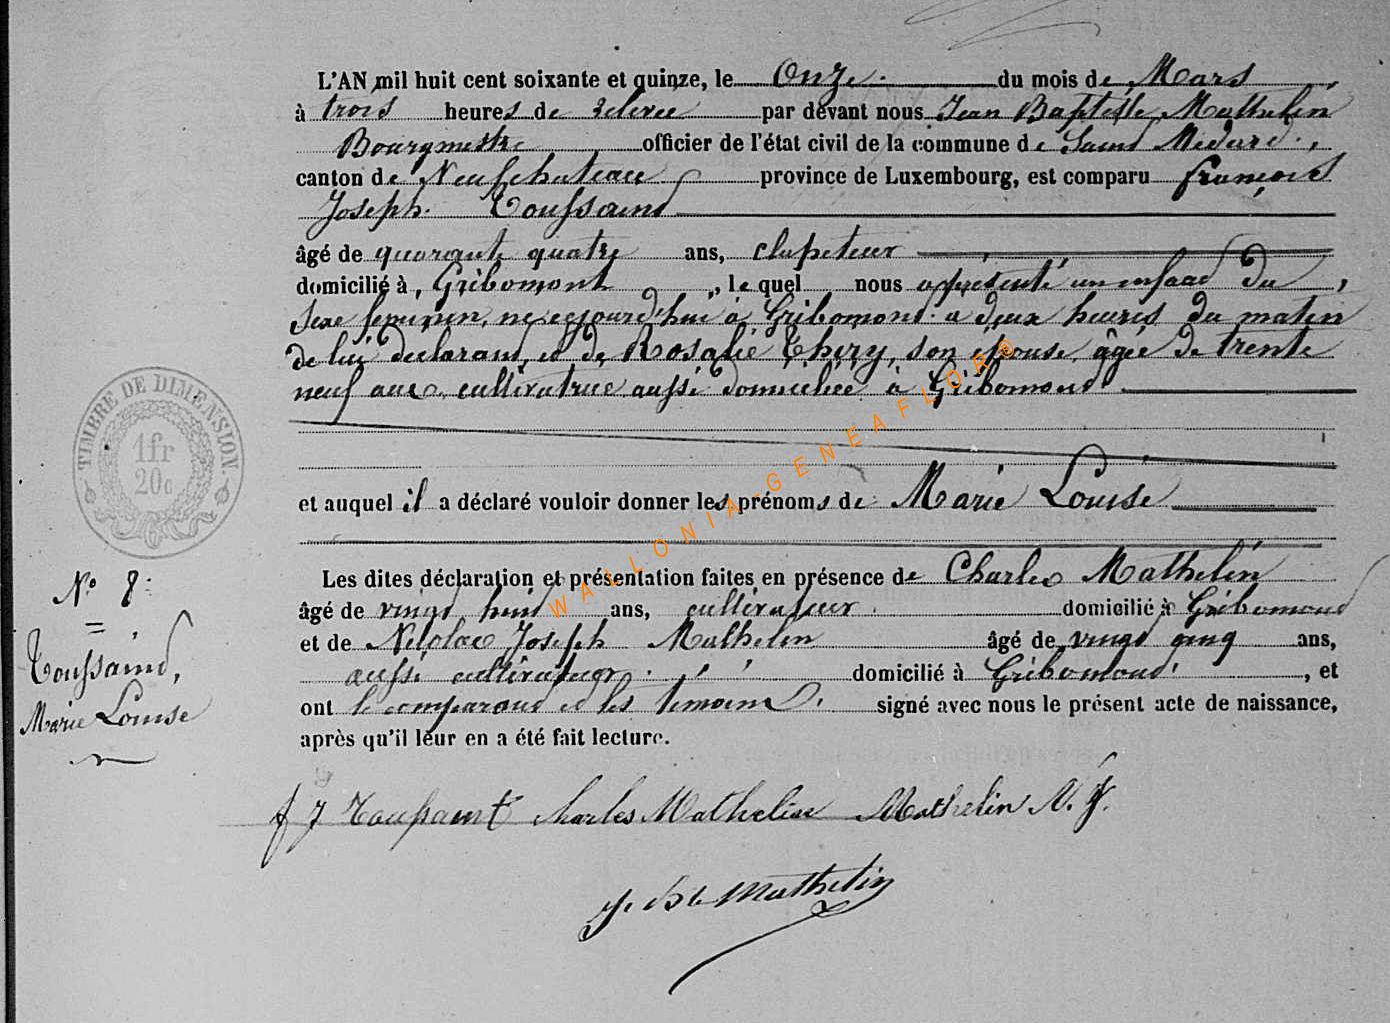 L'AN mil huit cent soixante et quinze, le Onze du mois de Mars,
à trois heures de relevée par devant nous Jean Baptiste Mathelin
Bourgmestre officier de l'état civil de la commune de Saint Médard,
canton de Neufchateau province de Luxembourg, est comparu françois
Joseph Toussaint
âgé de quarante quatre ans,
domicilié à Gribomont, lequel nous a présenté un enfant du
sexe féminin, né aujourd'hui à Gribomont à deux heures du matin
de lui déclarant, et de Rosalie Thiry, son épouse, âgée de trente
neuf ans, cultivatrice aussi domiciliée à Gribomont
et auquel il a déclaré vouloir donner les prénoms de Marie Louise
Les dites déclaration et présentation faites en présence de Charles Mathelin
âgé de vingt huit ans, cultivateur domicilié à Gribomont
et de Nicolas Joseph Mathelin âgé de vingt cinq ans,
aussi cultivateur domicilié à Gribomont, et
ont le comparant et les témoins signé avec nous le présent acte de naissance,
après qu'il leur en a été fait lecture.
f J Toussaint Charles Mathelin Mathelin N. J.
J. Bte Mathelin
TIMBRE DE DIMENSION.
1fr
20c
N° 8
=
Toussaint,
Marie Louise
WALLONIA-GENEAFLOR©